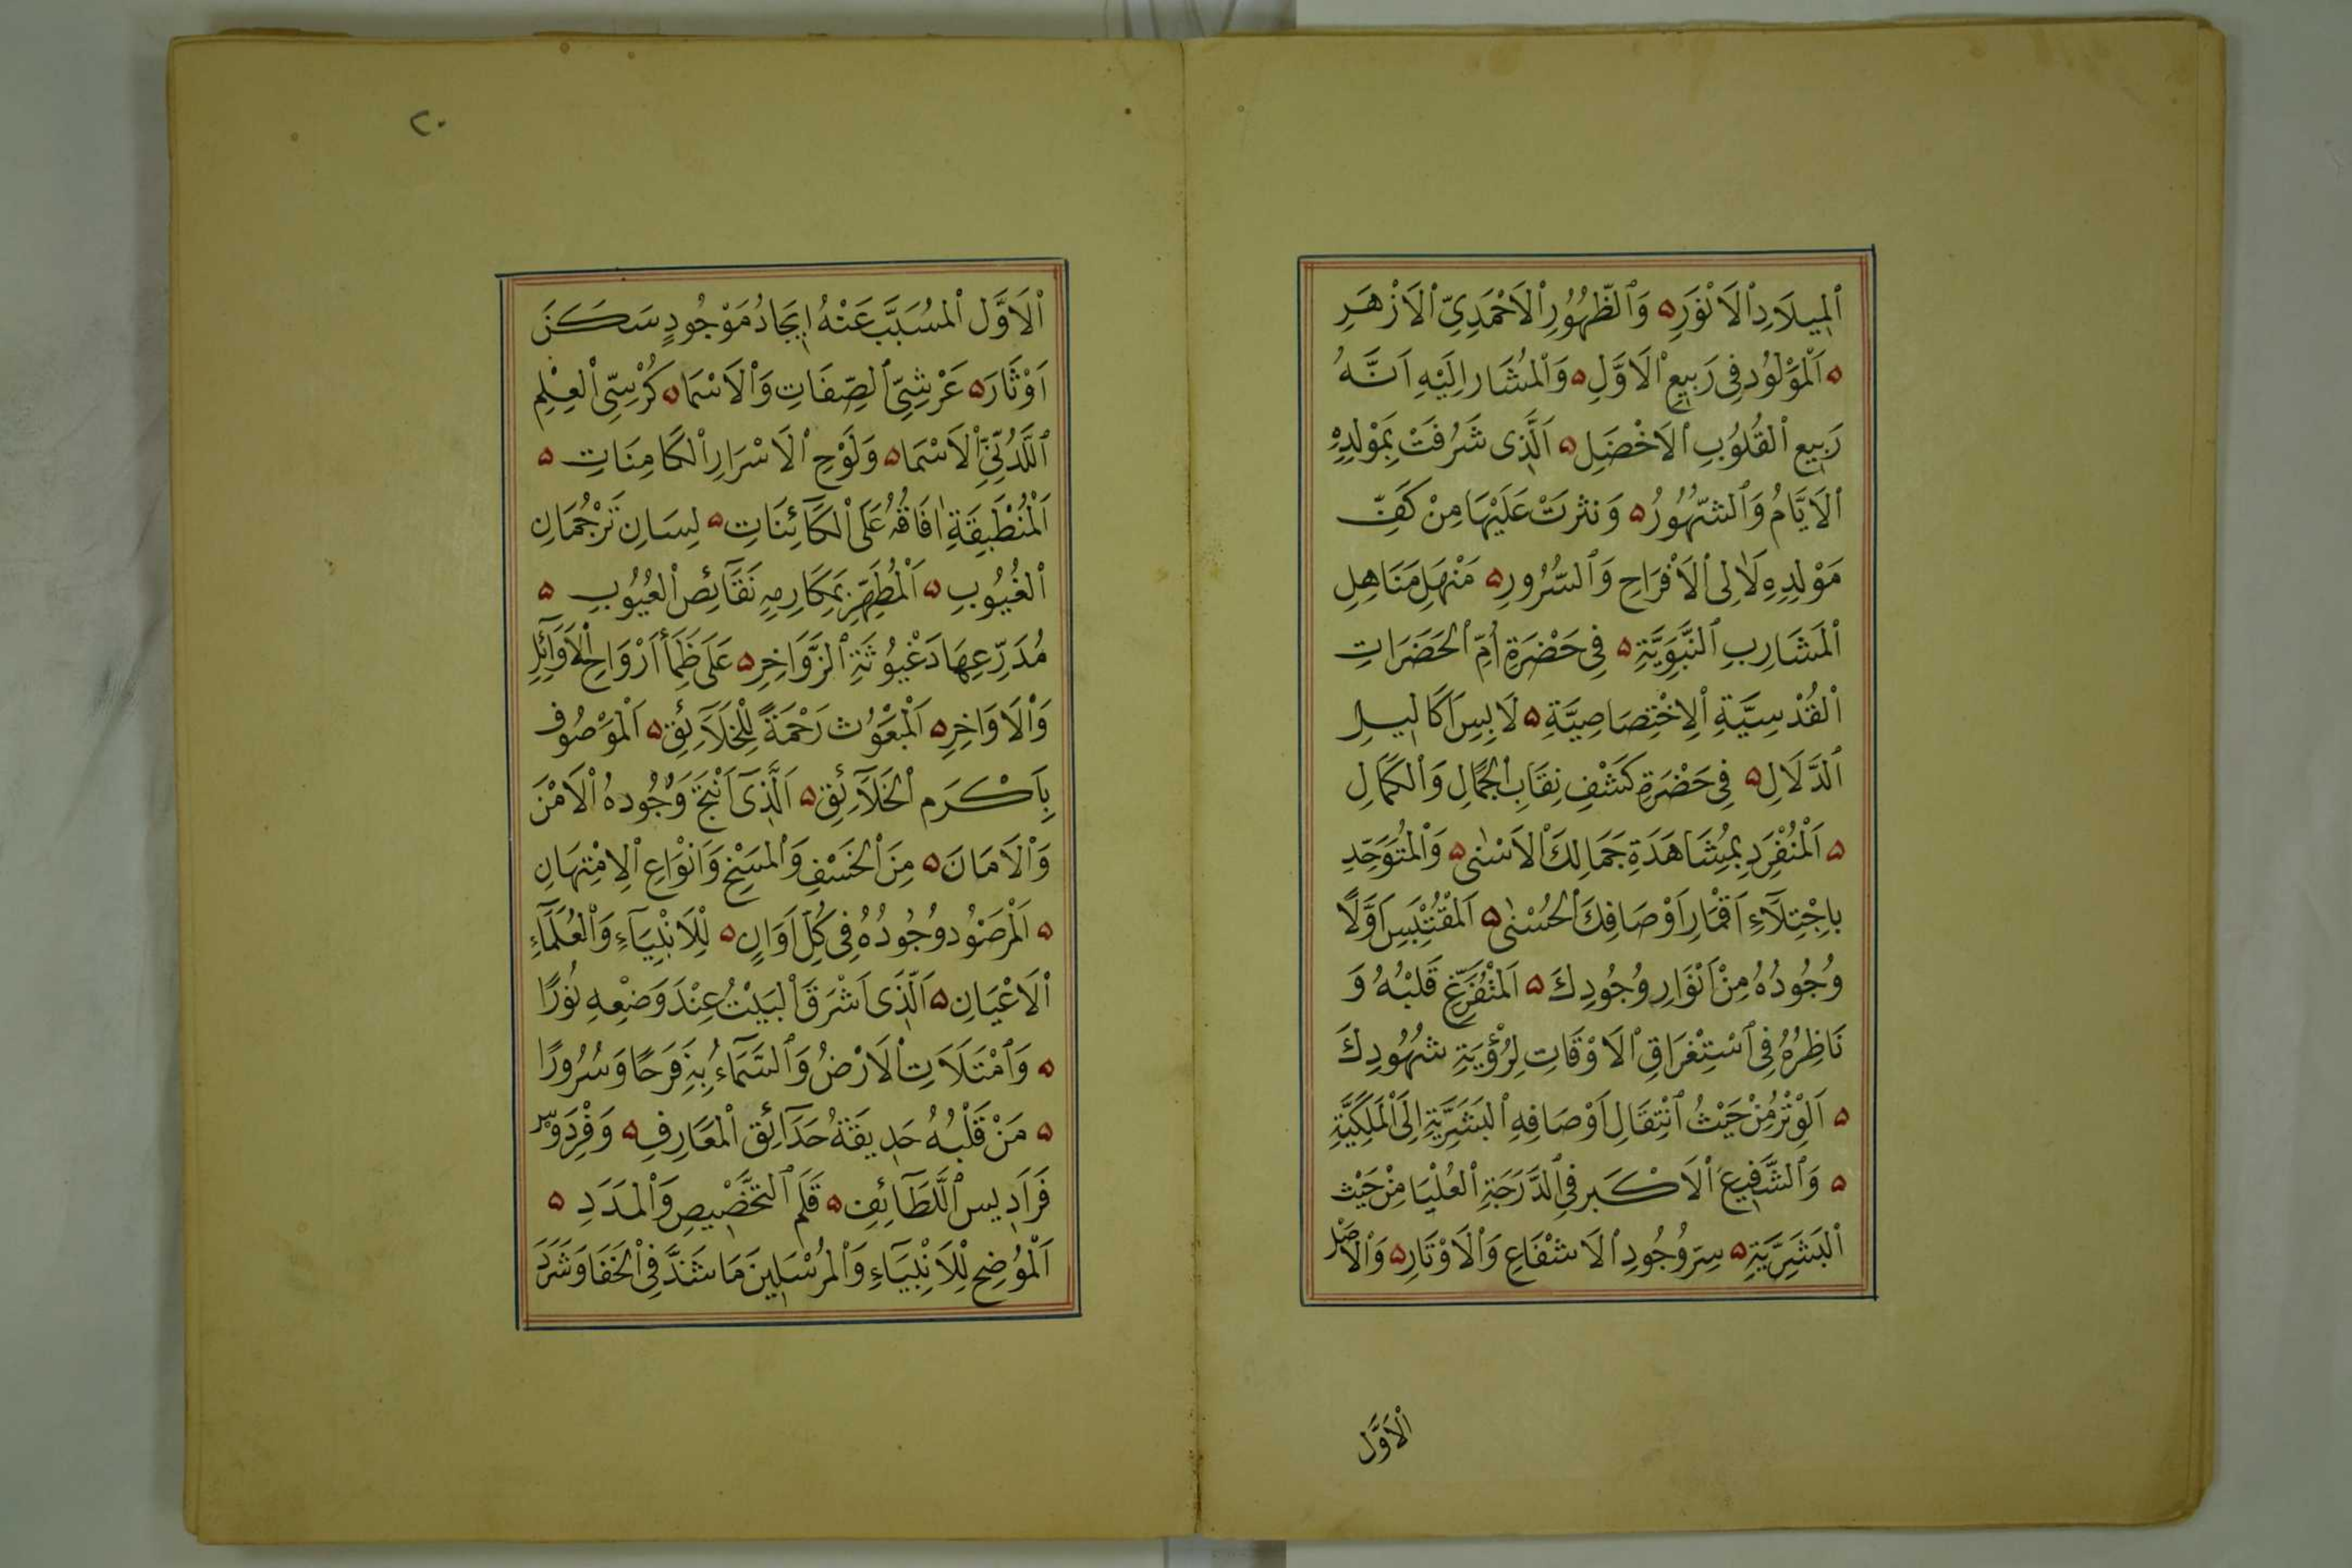 ٱلْمِيلَادِ ٱلْاَنْوَرِ ۵ وَٱلظُّهُورِ ٱلْاَحْمَدِيِّ ٱلْاَزْهَرِ
۵ اَلْمَوْلُودِ فِى رَبِيعِ ٱلْاَوَّلِ ۵ وَٱلْمُشَارِ اِلَيْهِ اَنَّهُ
رَبِيعِ ٱلْقُلُوبِ ٱلْاَخْضَلِ ۵ اَلَّذِى شَرُفَتْ بِمَوْلِدِهِ
ٱلْاَيَّامُ وَٱلشُّهُورُ ۵ وَنثرَتْ عَلَيْهَا مِنْ كَفِّ
مَوْلِدِهِ لَاٰلِى ٱلْاَفْرَاحِ وَٱلسُّرُورِ ۵ مَنْهَلِ مَنَاهِلِ
ٱلْمَشَارِبِ ٱلنَّبَوِيَّةِ ۵ فِى حَضْرَةِ اُمِّ ٱلْحَضَرَاتِ
ٱلْقُدْسِيَّةِ ٱلْاِخْتِصَاصِيَّةِ ۵ لَابِسِ اَكَالِيلِ
ٱلدَّلَالِ ۵ فِى حَضْرَةِ كَشْفِ نِقَابِ ٱلْجَمَالِ وَٱلْكَمَالِ
۵ اَلْمُنْفَرِدِ بِمُشَاهَدَةِ جَمَالِكَ ٱلْاَسْنٰى ۵ وَٱلْمُتَوَحِّدِ
بِاجْتِلَآءِ اَقْمَارِ اَوْصَافِكَ ٱلْحُسْنٰى ۵ اَلْمُقْتَبِسِ اَوَّلًا
وُجُودُهُ مِنْ اَنْوَارِ وُجُودِكَ ۵ اَلْمُتَفَرِّغِ قَلْبُهُ وَ
نَاظِرُهُ فِى ٱسْتِغْرَاقِ ٱلْاَوْقَاتِ لِرُؤْيَةِ شُهُودِكَ
۵ اَلْوِتْرِ مِنْ حَيْثُ ٱنْتِقَالِ اَوْصَافِهِ ٱلْبَشَرِيَّةِ اِلَى ٱلْمَلَكِيَّةِ
۵ وَٱلشَّفِيعَ ٱلْاَكْبَرِ فِى ٱلدَّرَجَةِ ٱلْعُلْيَا مِنْ حَيْث
ٱلْبَشَرِيَّةِ ۵ سِرِّ وُجُودِ ٱلْاَشْفَاعِ وَٱلْاَوْتَارِ ۵ وَٱلْاَصْلِ
ٱلْاَوَّل
٢٠
ٱلْاَوَّلِ ٱلْمُسَبَّبِ عَنْهُ اِيجَادُ مَوْجُودٍ سَكَنَ
اَوْثَارَ ۵ عَرْشِيِّ ٱلصِّفَاتِ وَٱلْاَسْمَا ۵ كُرْسِيِّ ٱلْعِلْمِ
ٱللَّدُنِّىِّ ٱلْاَسْمَا ۵ وَلَوْحِ ٱلْاَسْرَارِ ٱلْكَامِنَاتِ ۵
اَلْمُنْطَبِقَةِ اٰفَاقُهُ عَلَى ٱلْكَآئِنَاتِ ۵ لِسَانِ تَرْجُمَانِ
ٱلْغُيُوبِ ۵ اَلْمُطَهِّرِ بِمَكَارِمِهِ نَقَآئِصَ ٱلْعُيُوبِ ۵
مُدَرِّ عِهَادَ غُيُوثَةِ ٱلزَّوَاخِرِ ۵ عَلَى ظَمَأ اَرْوَاحِ ٱلْاَوَآئِلِ
وَٱلْاَوَاخِرِ ۵ اَلْمَبْعَوُث رَحْمَةً لِلْخَلَآئِقِ ۵ اَلْمَوْصُوفِ
بِاَكْرَمِ ٱلْخَلَآئِقِ ۵ اَلَّذِىٓ اَنْتَجَ وُجُودهُ ٱلْاَمْنَ
وَٱلْاَمَانَ ۵ مِنَ ٱلْخَسْفِ وَٱلْمَسْخِ وَاَنْوَاعِ ٱلْاِمْتِهَانِ
۵ اَلْمَرْصَوُد وُجُودُهُ فِى كُلِّ اَوَانٍ ۵ لِلْاَنْبِيَآءِ وَٱلْعُلَمَآءِ
ٱلْاَعْيَانِ ۵ اَلَّذِى اَشْرَقَ ٱلْبَيْتُ عِنْدَ وَضْعِهِ نُورًا
۵ وَٱمْتَلَاَتِ ٱلْاَرْضُ وَٱلسَّمَآءُ بِهِ فَرَحًا وَسُرُورًا
۵ مَنْ قَلْبُهُ حَدِيقَةُ حَدَآئِقِ ٱلْمَعَارِفِ ۵ وَفِرْدَوْس
فَرَادِيسِ ٱللَّطَآئِفِ ۵ قَلَمِ ٱلتَّخْصِيصِ وَٱلْمَدَدِ ۵
اَلْمُوُضِحِ لِلْاَنْبِيَآءِ وَٱلْمُرْسَلِينَ مَا شَذَّ فِى ٱلْخَفَا وَشَرَدَ